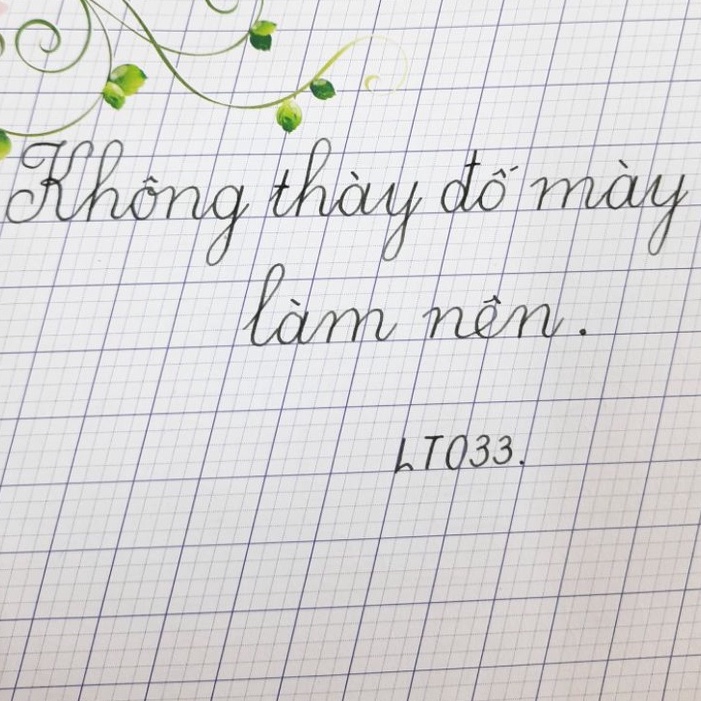 Không thày đố mày
làm nên.
LT033.